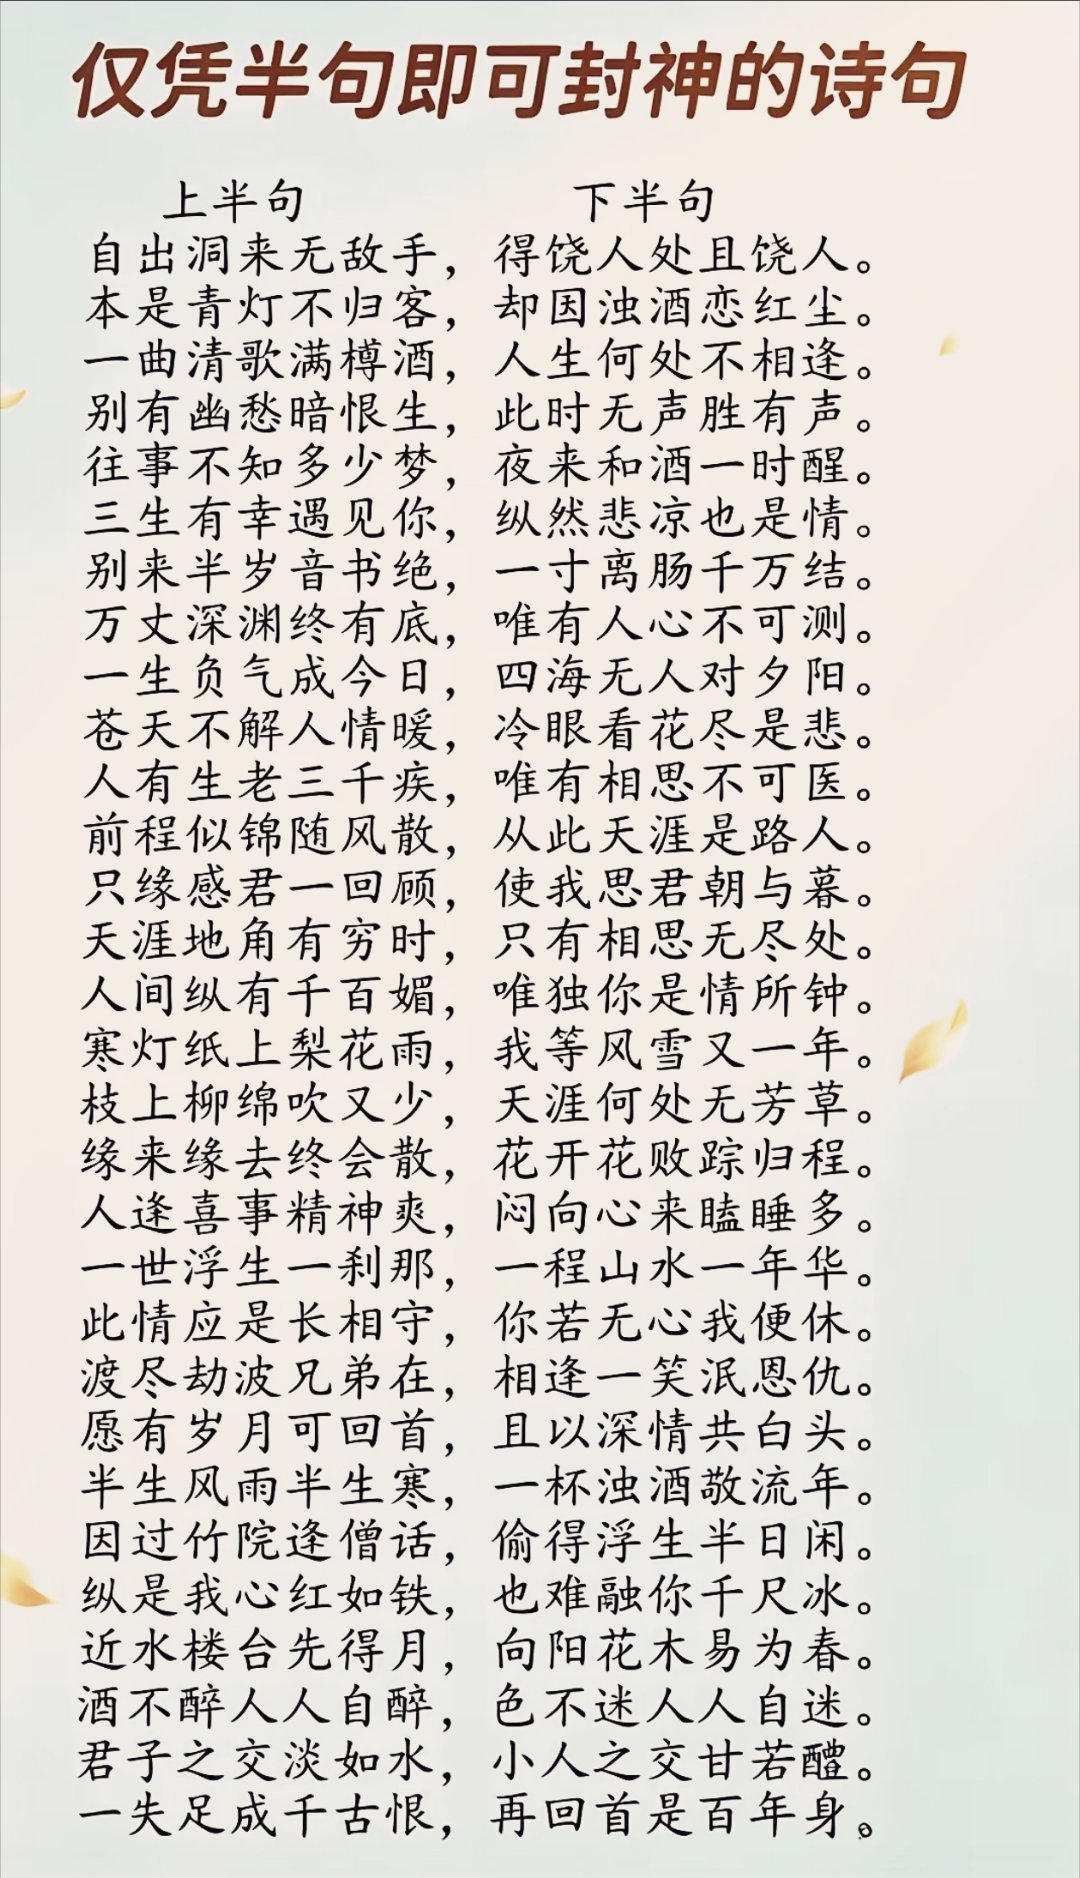 仅凭半句即可封神的诗句
上半句 下半句
自出洞来无敌手，得饶人处且饶人。
本是青灯不归客，却因浊酒恋红尘。
一曲清歌满樽酒，人生何处不相逢。
别有幽愁暗恨生，此时无声胜有声。
往事不知多少梦，夜来和酒一时醒。
三生有幸遇见你，纵然悲凉也是情。
别来半岁音书绝，一寸离肠千万结。
万丈深渊终有底，唯有人心不可测。
一生负气成今日，四海无人对夕阳。
苍天不解人情暖，冷眼看花尽是悲。
人有生老三千疾，唯有相思不可医。
前程似锦随风散，从此天涯是路人。
只缘感君一回顾，使我思君朝与暮。
天涯地角有穷时，只有相思无尽处。
人间纵有千百媚，唯独你是情所钟。
寒灯纸上梨花雨，我等风雪又一年。
枝上柳绵吹又少，天涯何处无芳草。
缘来缘去终会散，花开花败踪归程。
人逢喜事精神爽，闷向心来瞌睡多。
一世浮生一刹那，一程山水一年华。
此情应是长相守，你若无心我便休。
渡尽劫波兄弟在，相逢一笑泯恩仇。
愿有岁月可回首，且以深情共白头。
半生风雨半生寒，一杯浊酒敬流年。
因过竹院逢僧话，偷得浮生半日闲。
纵是我心红如铁，也难融你千尺冰。
近水楼台先得月，向阳花木易为春。
酒不醉人人自醉，色不迷人人自迷。
君子之交淡如水，小人之交甘若醴。
一失足成千古恨，再回首是百年身。